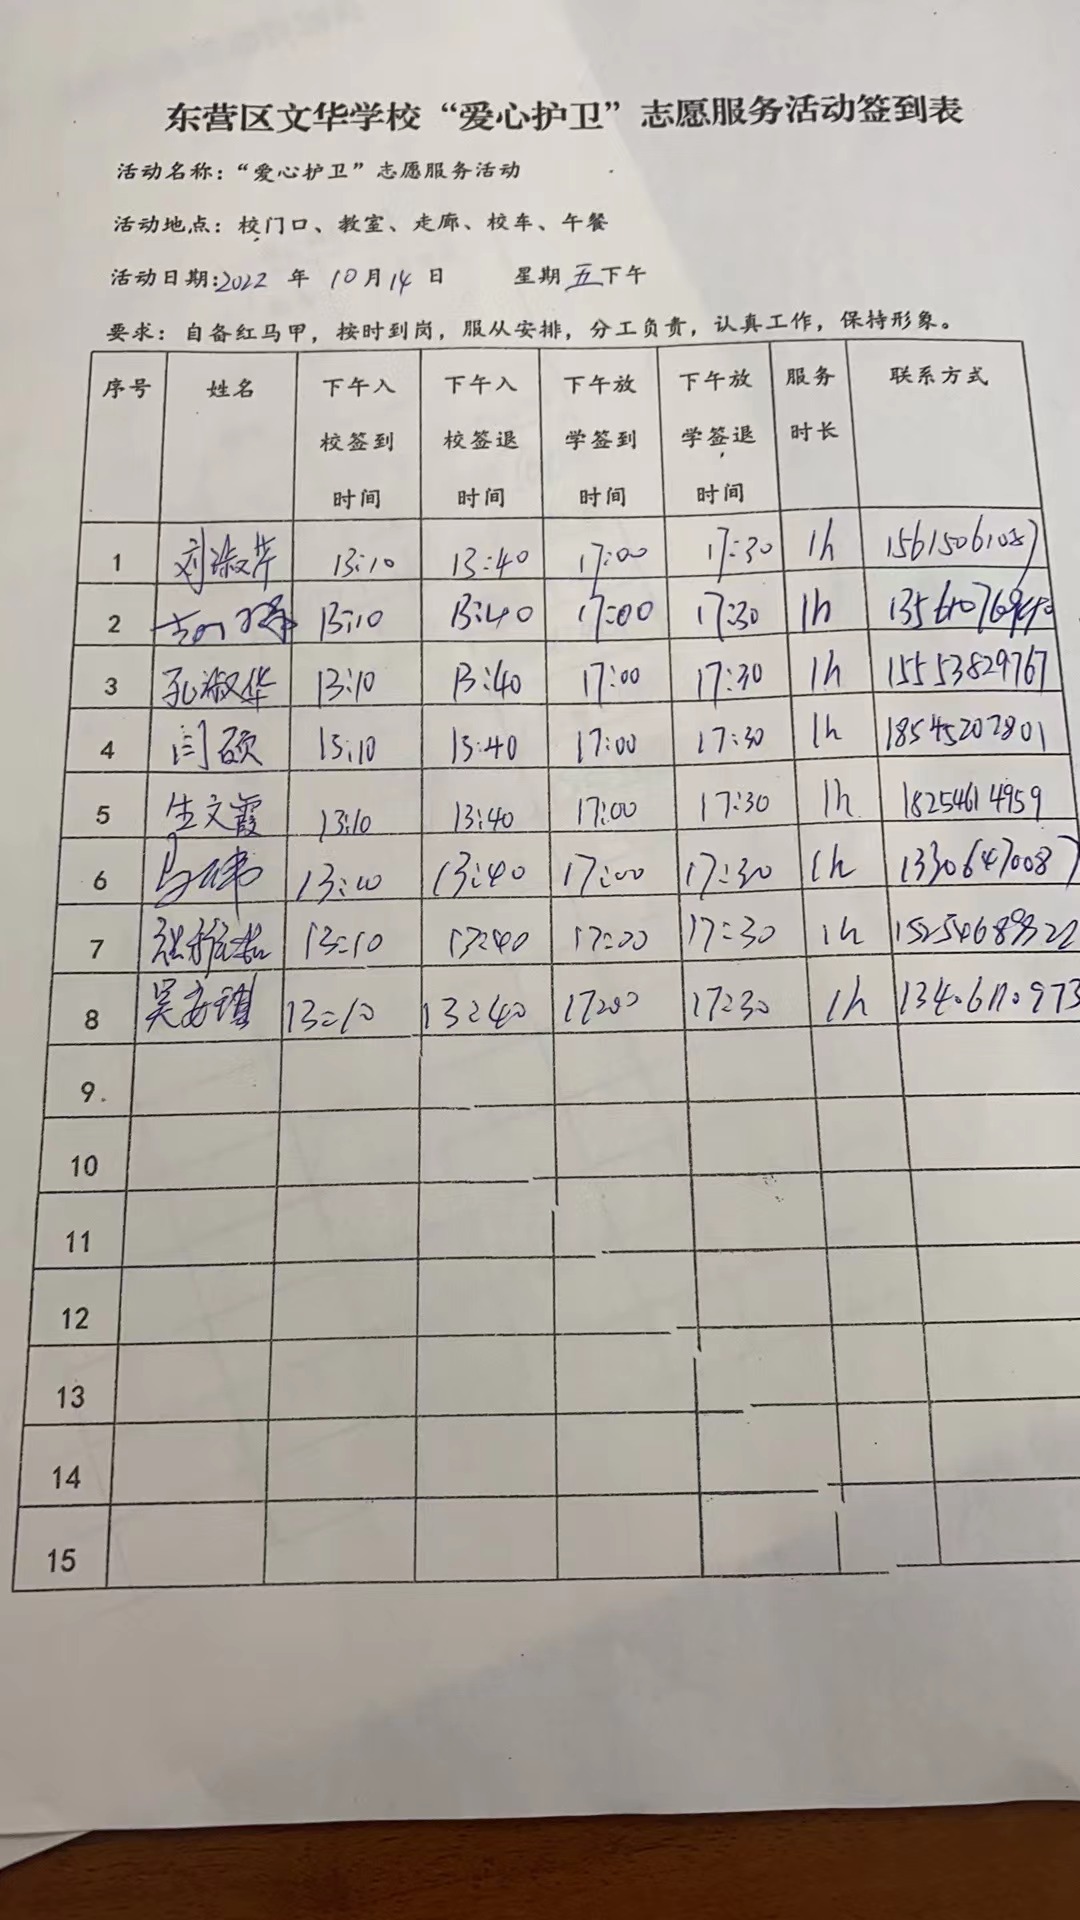 东营区文华学校“爱心护卫”志愿服务活动签到表
活动名称：“爱心护卫”志愿服务活动
活动地点：校门口、教室、走廊、校车、午餐
活动日期:2022 年 10月14 日 星期 五下午
要求：自备红马甲，按时到岗，服从安排，分工负责，认真工作，保持形象。
序号 姓名 下午入校签到时间 下午入校签退时间 下午放学签到时间 下午放学签退时间 服务时长 联系方式
1 刘淑芹 13:10 13:40 17:00 17:30 1h 15615061087
2 13:10 13:40 17:00 17:30 1h
3 孔淑华 13:10 13:40 17:00 17:30 1h 15553829767
4 闫硕 13:10 13:40 17:00 17:30 1h 18545207801
5 生文霞 13:10 13:40 17:00 17:30 1h 18254614959
6 马伟 13:10 13:40 17:00 17:30 1h 13306470087
7 13:10 13:40 17:00 17:30 1h
8 吴安琪 13:10 13:40 17:00 17:30 1h
9.
10
11
12
13
14
15